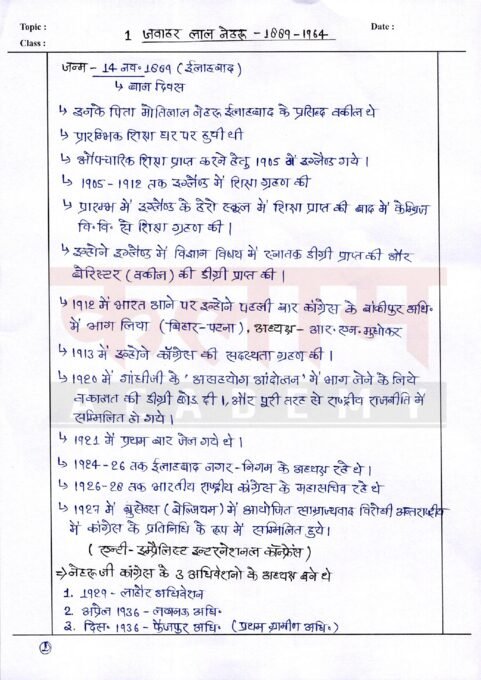 Topic :
Date :
Class :
1 जवाहर लाल नेहरू - 1889-1964
जन्म - 14 नव॰ 1889 (ईलाहबाद)
↳ बाल दिवस
↳ इनके पिता मोतिलाल नेहरू ईलाहबाद के प्रसिद्ध वकील थे
↳ प्रारम्भिक शिक्षा घर पर हुयी थी
↳ औपचारिक शिक्षा प्राप्त करने हेतु 1905 में इंग्लैण्ड गये।
↳ 1905-1912 तक इंग्लैण्ड में शिक्षा ग्रहण की
↳ प्रारम्भ में इंग्लैण्ड के हैरो स्कूल में शिक्षा प्राप्त की बाद में कैम्ब्रिज
वि.वि. से शिक्षा ग्रहण की।
↳ इन्होने इंग्लैण्ड में विज्ञान विषय में स्नातक डीग्री प्राप्त की और
बैरिस्टर (वकील) की डीग्री प्राप्त की।
↳ 1912 में भारत आने पर इन्होने पहली बार कांग्रेस के बांकीपुर अधि॰
में भाग लिया (बिहार-पटना). अध्यक्ष - आर. एन. मुधोकर
↳ 1913 में इन्होने कॉंग्रेस की सदस्यता ग्रहण की।
↳ 1920 में गांधीजी के 'असहयोग आंदोलन' में भाग लेने के लिये
वकालत की डीग्री छोड दी।, और पूरी तरह से राष्ट्रीय राजनीति में
सम्मिलित हो गये।
↳ 1921 में प्रथम बार जेल गये थे।
↳ 1924-26 तक ईलाहबाद नगर-निगम के अध्यक्ष रहे थे।
↳ 1926-28 तक भारतीय राष्ट्रीय कांग्रेस के महासचिव रहे थे
↳ 1927 में ब्रुसेल्स (बेल्जियम) में आयोजित साम्राज्यवाद विरोधी अन्तराष्ट्रीय
में कांग्रेस के प्रतिनिधि के रूप में सम्मिलित हुये।
(एन्टी-इम्पैरिलिस्ट इन्टरनेशनल कॉन्फ्रेंस)
⇒ नेहरू जी कांग्रेस के 3 अधिवेशनो के अध्यक्ष बने थे
1. 1929 - लाहौर अधिवेशन
2. अप्रेल 1936 - लखनऊ अधि॰
3. दिस॰ 1936 - फैजपुर अधि॰ (प्रथम ग्रामीण अधि॰)
1
कलाम
ACADEMY